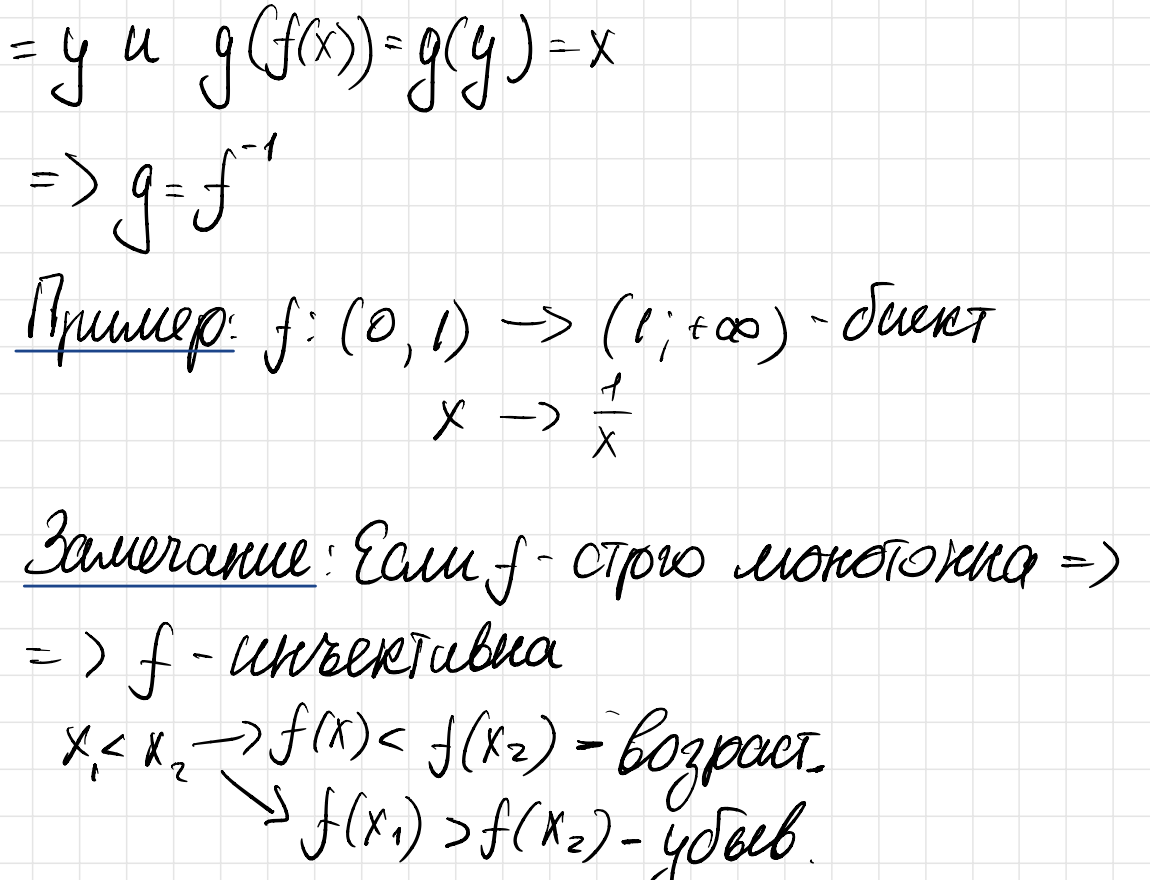 = y и g(f(x)) = g(y) = x
=> g = f⁻¹
Пример: f: (0, 1) -> (1; +∞) - биект
x -> 1/x
Замечание: Если f - строго монотонна =>
=> f - инъективна
x₁ < x₂ -> f(x) < f(x₂) - возраст.
↘ f(x₁) > f(x₂) - убыв.